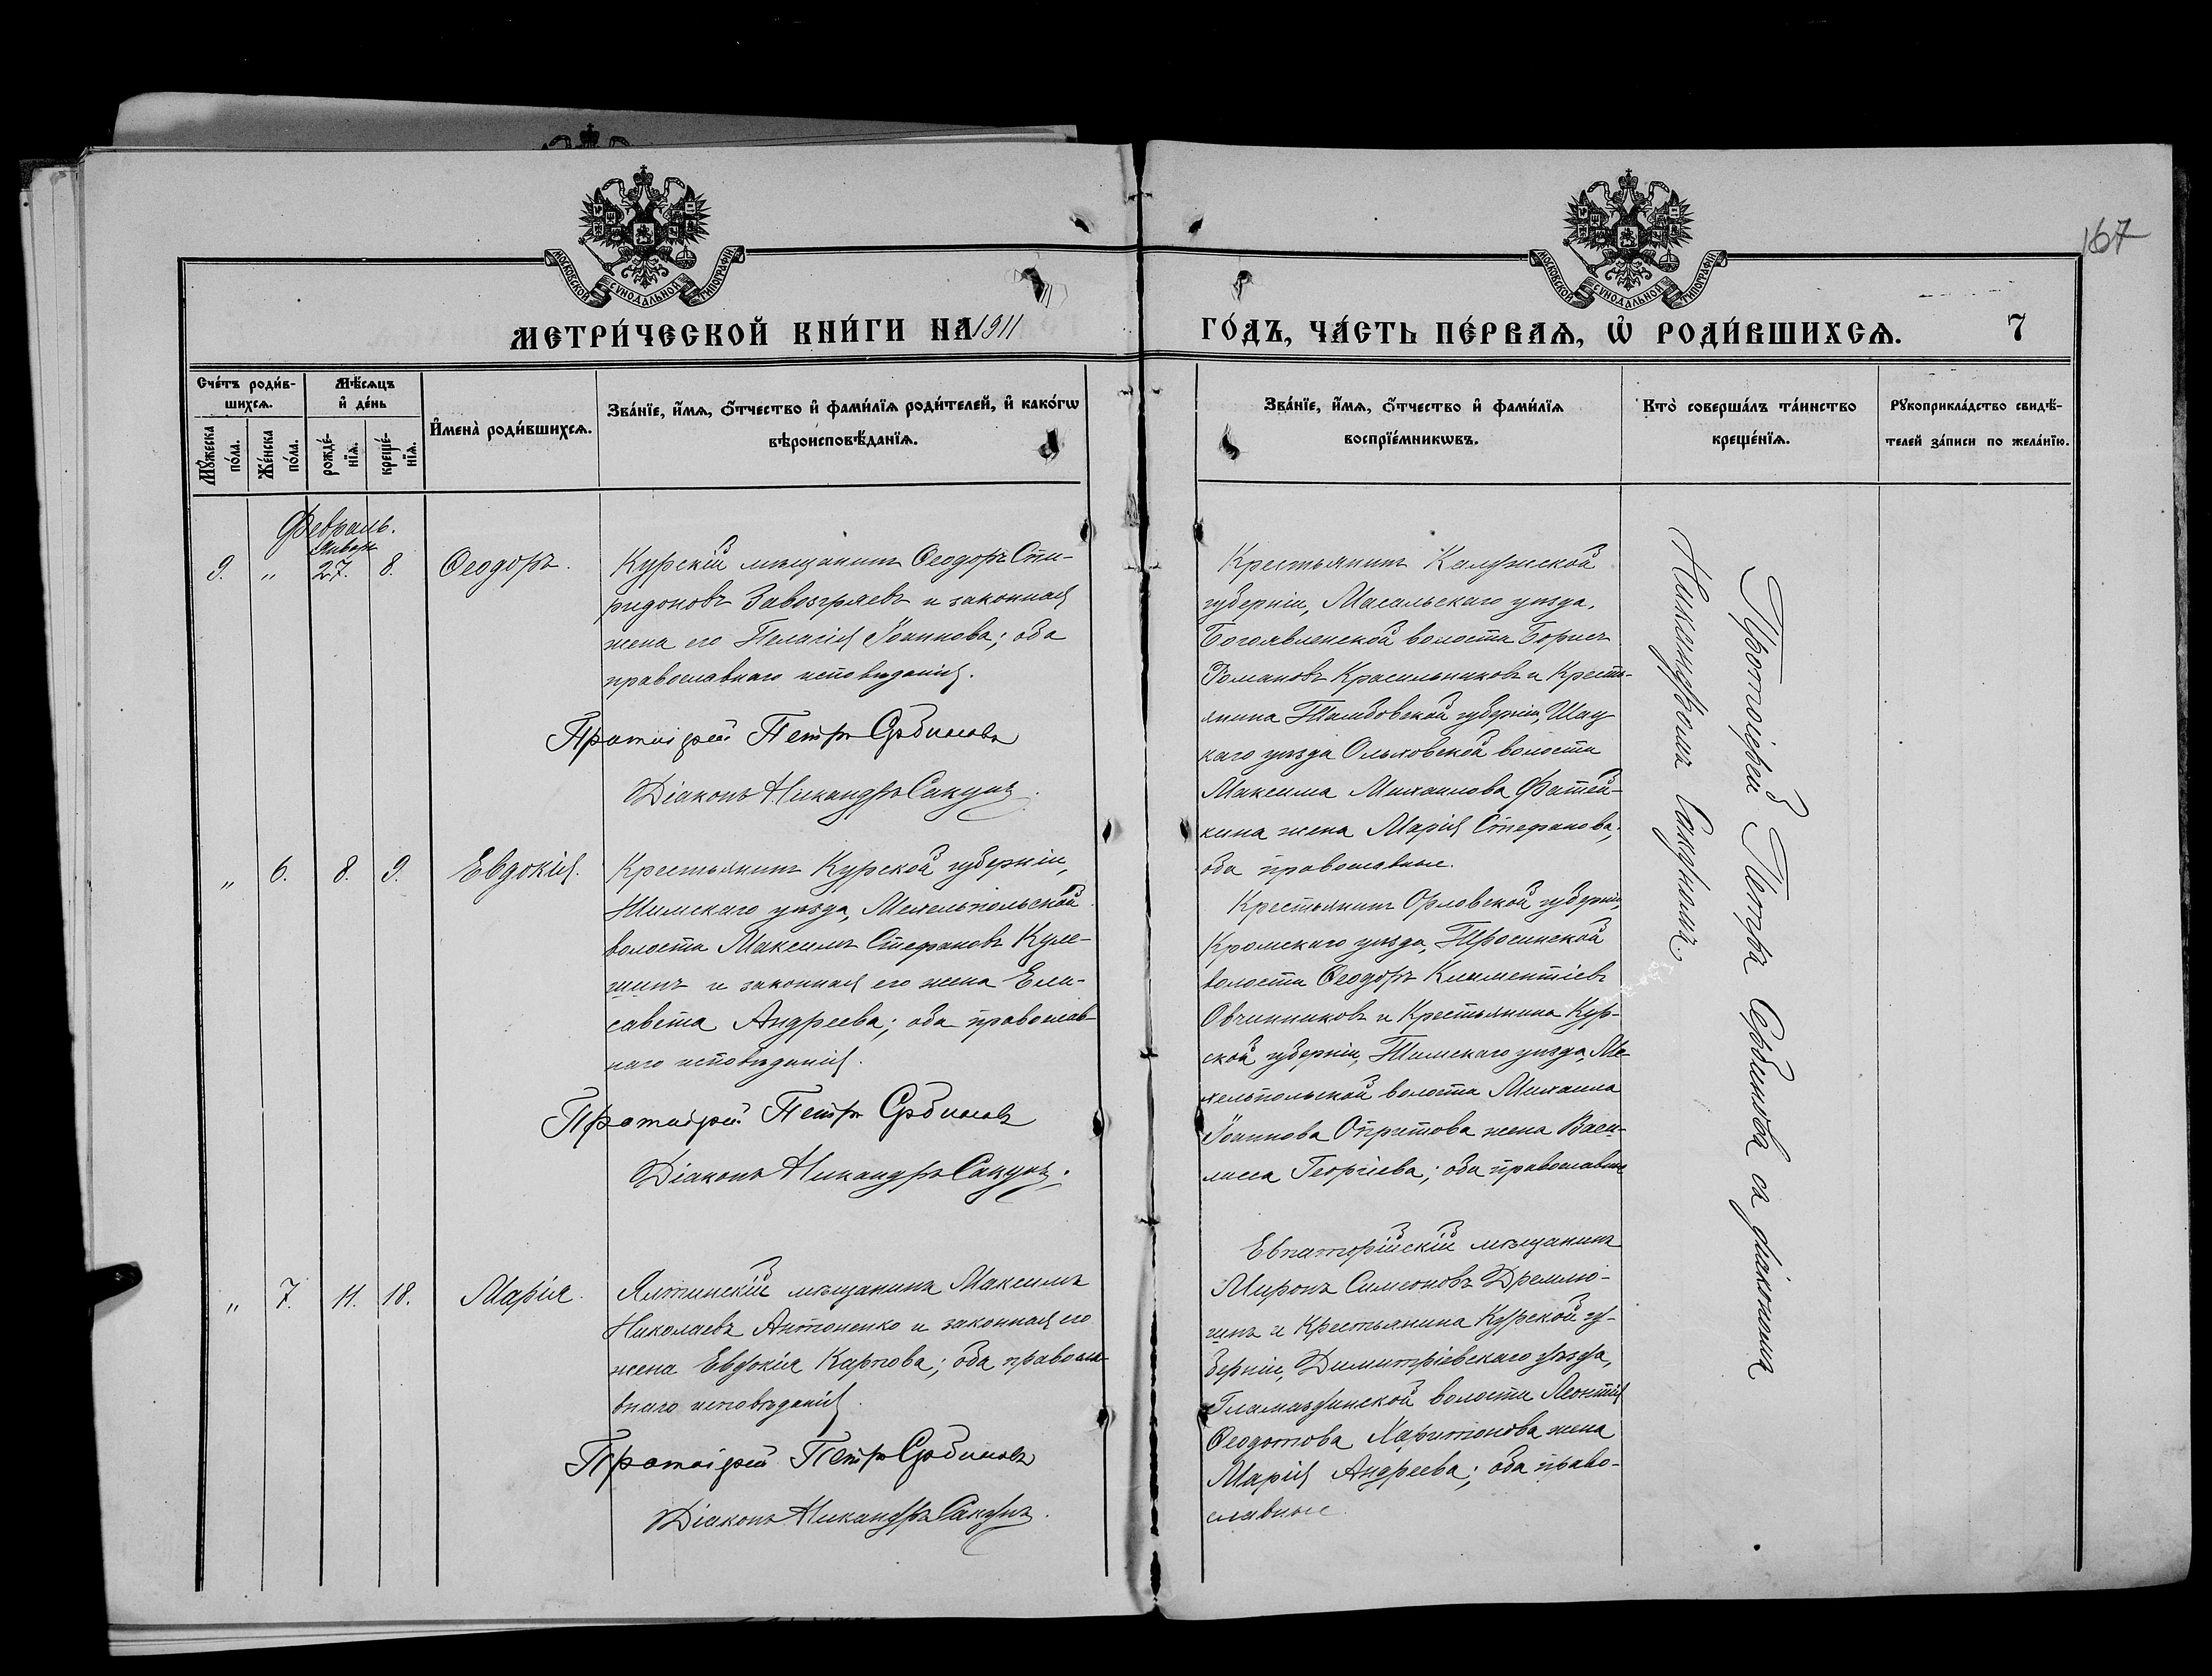 167
МОСКОВСКОЙ СУНОДАЛЬНОЙ ТИПОГРАФІИ
МОСКОВСКОЙ СУНОДАЛЬНОЙ ТИПОГРАФІИ
МЕТРИ́ЧЕСКОЙ КНИ́ГИ НА 1911
ГО́ДЪ, ЧА́СТЬ ПЕ́РВАѦ, Ѡ҆ РОДИ́ВШИХСѦ. 7
Сче́тъ роди́в-
шихсѧ.
Мꙋ́жеска
по́ла.
Же́нска
по́ла.
Мѣ́сѧцъ
и҆ де́нь
рожде́-
нїѧ.
креще́-
нїѧ.
И҆мена̀ роди́вшихсѧ.
Зва́нїе, и҆́мѧ, ѻ҆́тчество и҆ фами́лїѧ роди́телей, и҆ како́гѡ
вѣроисповѣ́данїѧ.
Зва́нїе, и҆́мѧ, ѻ҆́тчество и҆ фами́лїѧ
воспрїе́мникѡвъ.
Кто̀ соверша́лъ та́инство
креще́нїѧ.
Рꙋкоприкла́дство свидѣ́-
телей за́писи по жела́нїю.
Февраль.
Январ
9. " 27. 8. Ѳеодоръ.
Курскій мѣщанинъ Ѳеодоръ Спи-
ридоновъ Завозгряевъ и законная
жена его Пелагія Іоаннова; оба
православнаго исповѣданія.
Протоіерей Петръ Сербиновъ
Діаконъ Никандръ Сакунъ.
Крестьянинъ Калужской
губерніи, Масальскаго уѣзда,
Богоявленской волости Борисъ
Романовъ Красильниковъ и Кресть-
янина Тамбовской губерніи, Шац
каго уѣзда Ольховской волости
Максима Михаилова Фатей-
кина жена Марія Стефанова,
оба православные.
" 6. 8. 9. Евдокія.
Крестьянинъ Курской губерніи,
Тимскаго уѣзда, Мехельпольской
волости Максимъ Стефановъ Куле-
шинъ и законная его жена Ели-
савета Андреева; оба православ-
наго исповѣданія.
Протоіерей Петръ Сербиновъ
Діаконъ Никандръ Сакунъ.
Крестьянинъ Орловской губерніи,
Кромскаго уѣзда, Тросинской
волости Ѳеодоръ Климентіевъ
Овчинниковъ и Крестьянина Кур-
ской губерніи, Тимскаго уѣзда, Ме-
хельпольской волости Михаила
Іоаннова Опритова жена Васи-
лисса Георгіева; оба православные
" 7. 11. 18. Марія.
Ялтинскій мѣщанинъ Максимъ
Николаевъ Антоненко и законная его
жена Евдокія Карпова; оба правосла-
внаго исповѣданія.
Протоіерей Петръ Сербиновъ
Діаконъ Никандръ Сакунъ.
Евпаторійскій мѣщанинъ
Миронъ Симеоновъ Дремлю-
шнъ и Крестьянина Курской гу-
берніи, Димитріевскаго уѣзда,
Гламаздинской волости Леонтія
Ѳеодотова Харитонова жена
Марія Андреева; оба право-
славные.
Протоіерей Петръ Сербиновъ съ діакономъ
Никандромъ Сакуномъ.